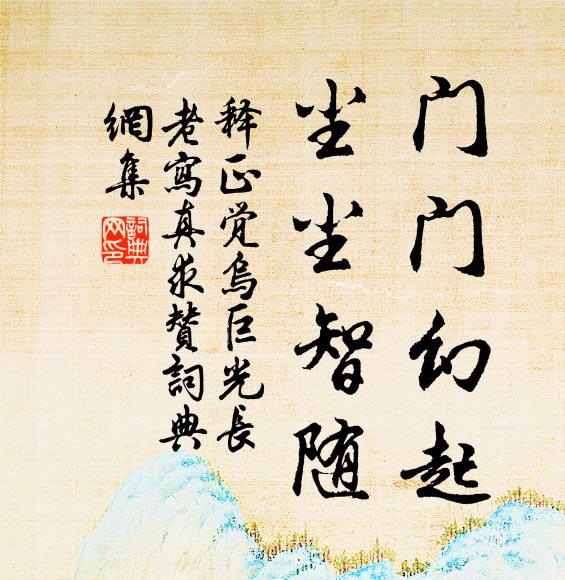 门门幻起
尘尘智随
释正觉乌巨光长
老寫真求赞詞典
網集
詞典
网印